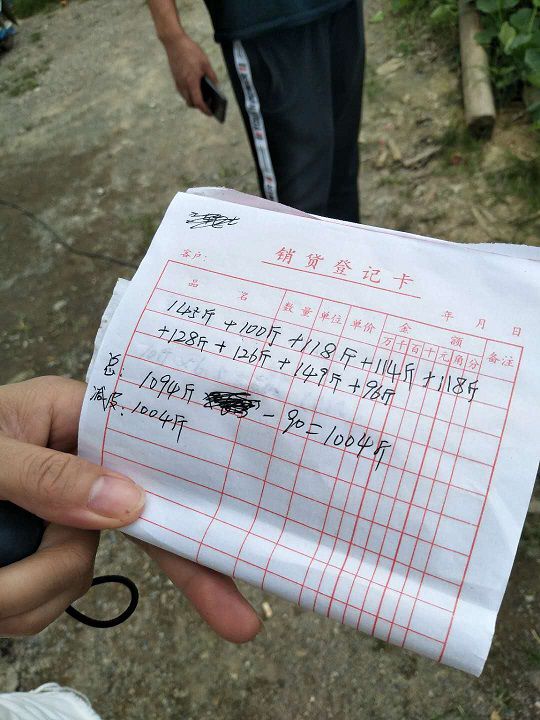 销货登记卡
客户：
年 月 日
品名 数量 单位 单价 金额 备注
万千百十元角分
143斤+100斤+118斤+114斤+118斤
+128斤+126斤+149斤+96斤
总：1094斤 -90=1004斤
减皮：1004斤